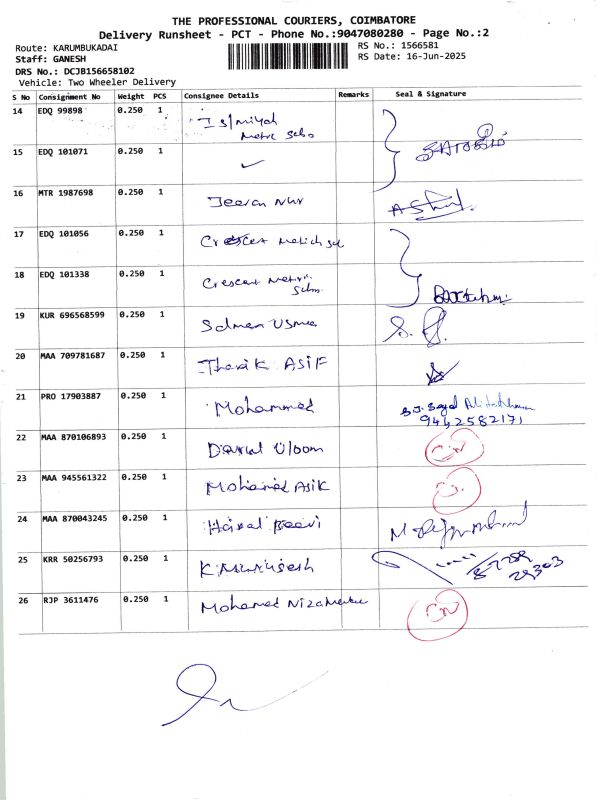 THE PROFESSIONAL COURIERS, COIMBATORE
Delivery Runsheet - PCT - Phone No.:9047080280 - Page No.:2
Route: KARUMBUKADAI
RS No.: 1566581
Staff: GANESH
RS Date: 16-Jun-2025
DRS No.: DCJB156658102
Vehicle: Two Wheeler Delivery
S No Consignment No Weight PCS Consignee Details Remarks Seal & Signature
14 EDQ 99898 0.250 1
15 EDQ 101071 0.250 1 ✓
16 MTR 1987698 0.250 1 Jeeran Nur
17 EDQ 101056 0.250 1 Crescent
18 EDQ 101338 0.250 1 Crescent
19 KUR 696568599 0.250 1 Salman
20 MAA 709781687 0.250 1 Tharik ASIF
21 PRO 17903887 0.250 1 Mohammed S.J. Sayed
9442582171
22 MAA 870106893 0.250 1 Darul Uloom
23 MAA 945561322 0.250 1 Mohamed Asik
24 MAA 870043245 0.250 1 Beevi
25 KRR 50256793 0.250 1 K. Murugesh
26 RJP 3611476 0.250 1 Mohamed